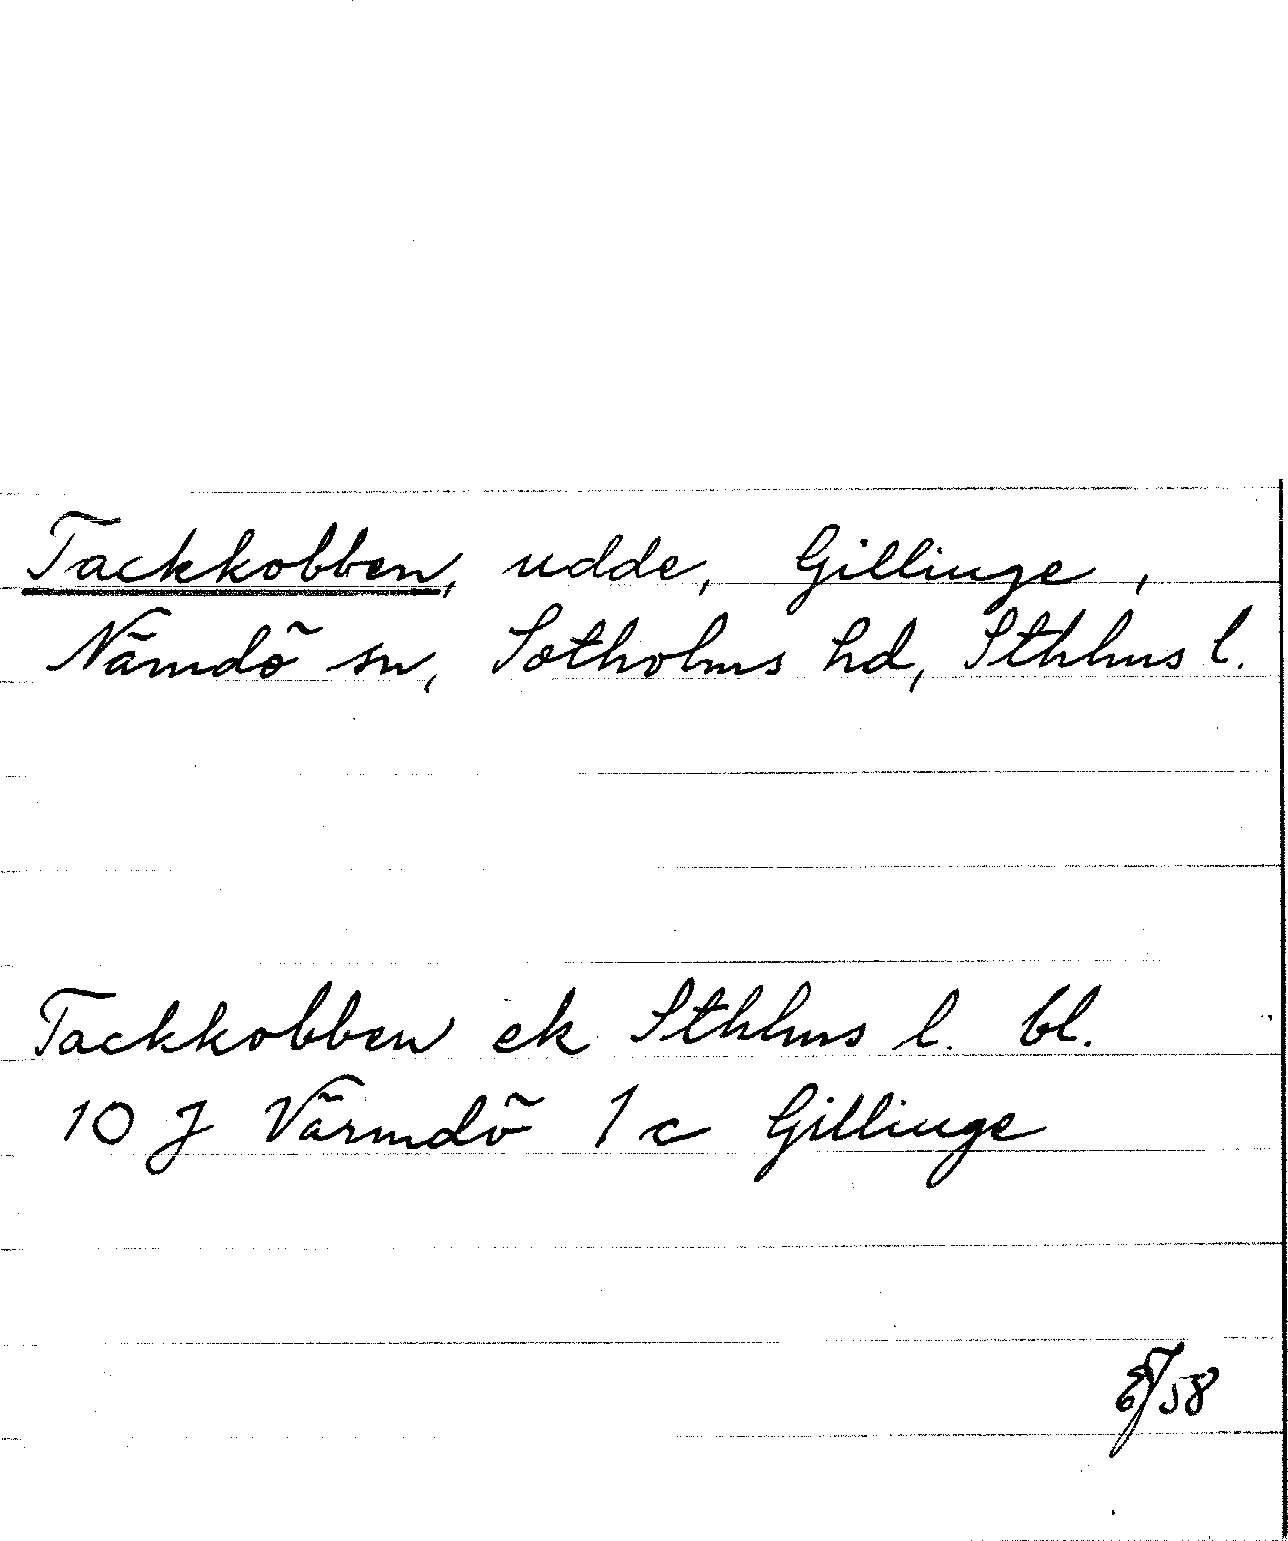 Tackkobben, udde, Gillinge,
Nämdö sn, Sotholms hd, Sthlms l.
Tackkobben ek Sthlms l. bl.
10 J Värmdö 1 c Gillinge
58